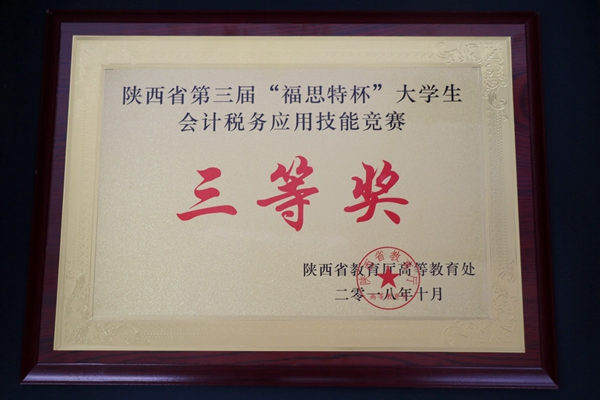 陕西省第三届“福思特杯”大学生
会计税务应用技能竞赛
三等奖
陕西省教育厅高等教育处
二零一八年十月
陕西省教育厅